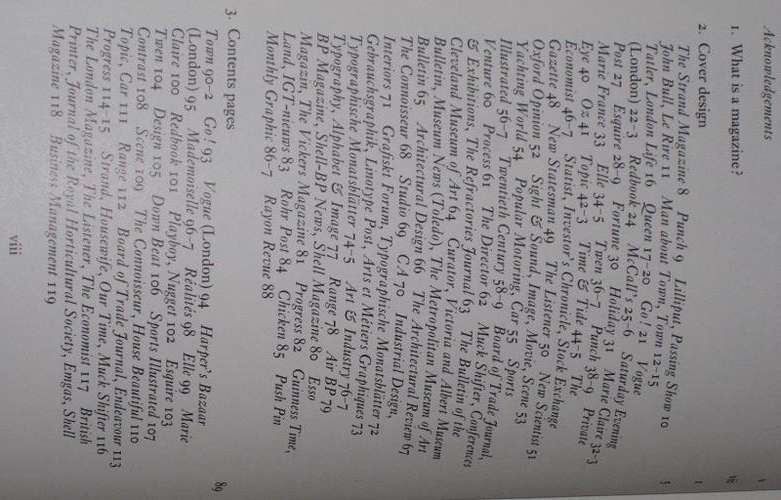 Acknowledgements
1. What is a magazine? 1
2. Cover design 5
The Strand Magazine 8 Punch 9 Lilliput, Passing Show 10
John Bull, Le Rire 11 Man about Town, Town 12-15
Tatler, London Life 16 Queen 17-20 Go! 21 Vogue
(London) 22-3 Redbook 24 McCall's 25-6 Saturday Evening
Post 27 Esquire 28-9 Fortune 30 Holiday 31 Marie Claire 32-3
Marie France 33 Elle 34-5 Twen 36-7 Punch 38-9 Private
Eye 40 Oz 41 Topic 42-3 Time & Tide 44-5 The
Economist 46-7 Statist, Investor's Chronicle, Stock Exchange
Gazette 48 New Statesman 49 The Listener 50 New Scientist 51
Oxford Opinion 52 Sight & Sound, Image, Movie, Scene 53
Yachting World 54 Popular Motoring, Car 55 Sports
Illustrated 56-7 Twentieth Century 58-9 Board of Trade Journal,
Venture 60 Process 61 The Director 62 Muck Shifter, Conferences
& Exhibitions, The Refractories Journal 63 The Bulletin of the
Cleveland Museum of Art 64 Curator, Victoria and Albert Museum
Bulletin, Museum News (Toledo), The Metropolitan Museum of Art
Bulletin 65 Architectural Design 66 The Architectural Review 67
The Connoisseur 68 Studio 69 CA 70 Industrial Design,
Interiors 71 Grafiskt Forum, Typographische Monatsblätter 72
Gebrauchsgraphik, Linotype Post, Arts et Métiers Graphiques 73
Typographische Monatsblätter 74-5 Art & Industry 76-7
Typography, Alphabet & Image 77 Range 78 Air BP 79
BP Magazine, Shell-BP News, Shell Magazine 80 Esso
Magazin, The Vickers Magazine 81 Progress 82 Guinness Time,
Land, IGT-nieuws 83 Rohr Post 84 Chicken 85 Push Pin
Monthly Graphic 86-7 Rayon Revue 88
3. Contents pages 89
Town 90-2 Go! 93 Vogue (London) 94 Harper's Bazaar
(London) 95 Mademoiselle 96-7 Réalités 98 Elle 99 Marie
Claire 100 Redbook 101 Playboy, Nugget 102 Esquire 103
Twen 104 Design 105 Down Beat 106 Sports Illustrated 107
Contrast 108 Scene 109 The Connoisseur, House Beautiful 110
Topic, Car 111 Range 112 Board of Trade Journal, Endeavour 113
Progress 114-15 Strand, Housewife, Our Time, Muck Shifter 116
The London Magazine, The Listener, The Economist 117 British
Printer, Journal of the Royal Horticultural Society, Emgas, Shell
Magazine 118 Business Management 119
viii